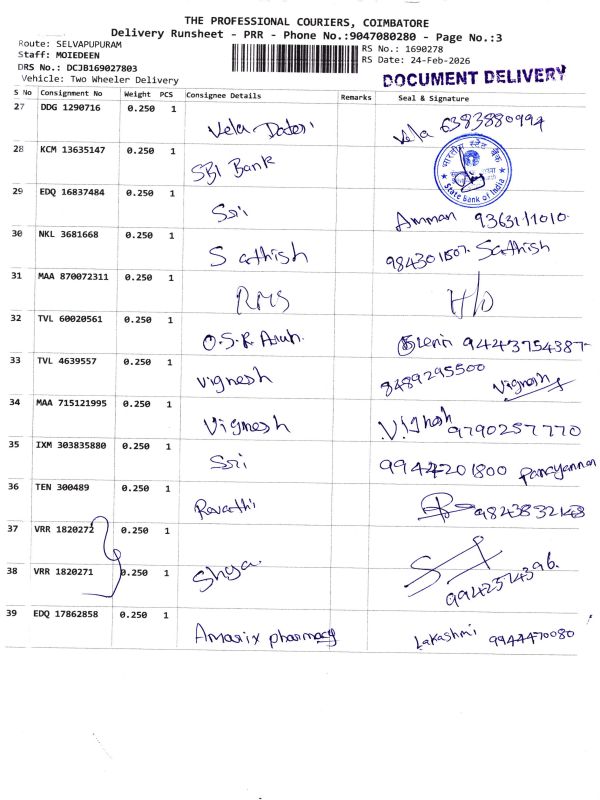 THE PROFESSIONAL COURIERS, COIMBATORE
Delivery Runsheet - PRR - Phone No.:9047080280 - Page No.:3
Route: SELVAPUPURAM
Staff: MOIEDEEN
DRS No.: DCJB169027803
Vehicle: Two Wheeler Delivery
RS No.: 1690278
RS Date: 24-Feb-2026
DOCUMENT DELIVERY
S No Consignment No Weight PCS Consignee Details Remarks Seal & Signature
27 DDG 1290716 0.250 1 Vela 6383880994
28 KCM 13635147 0.250 1 SBI Bank भारतीय स्टेट बैंक State bank of India
29 EDQ 16837484 0.250 1 Sri Amman 9363111010
30 NKL 3681668 0.250 1 Sathish 984301507. Sathish
31 MAA 870072311 0.250 1 RMS H/O
32 TVL 60020561 0.250 1 O.S.R. Glenin 94443754387
33 TVL 4639557 0.250 1 Vignesh 8489295500 Vignesh
34 MAA 715121995 0.250 1 Vignesh 9790257770
35 IXM 303835880 0.250 1 Sri 9944201800
36 TEN 300489 0.250 1 Revathi 9843832148
37 VRR 1820272 0.250 1
38 VRR 1820271 0.250 1 Shya. 9942574396.
39 EDQ 17862858 0.250 1 Amarix pharmacy Lakashmi 9944470080